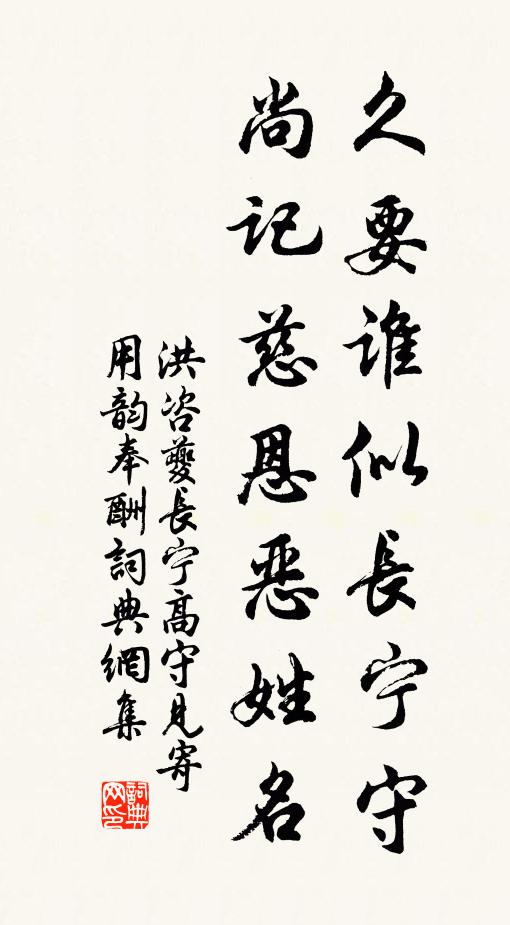 久要谁似長宁守
尚记慈恩恶姓名
洪咨夔長宁高守见寄
用韵奉酬詞典網集
詞典网印